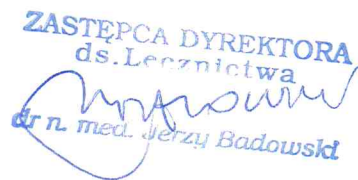 ZASTĘPCA DYREKTORA
ds. Lecznictwa
dr n. med. Jerzy Badowski